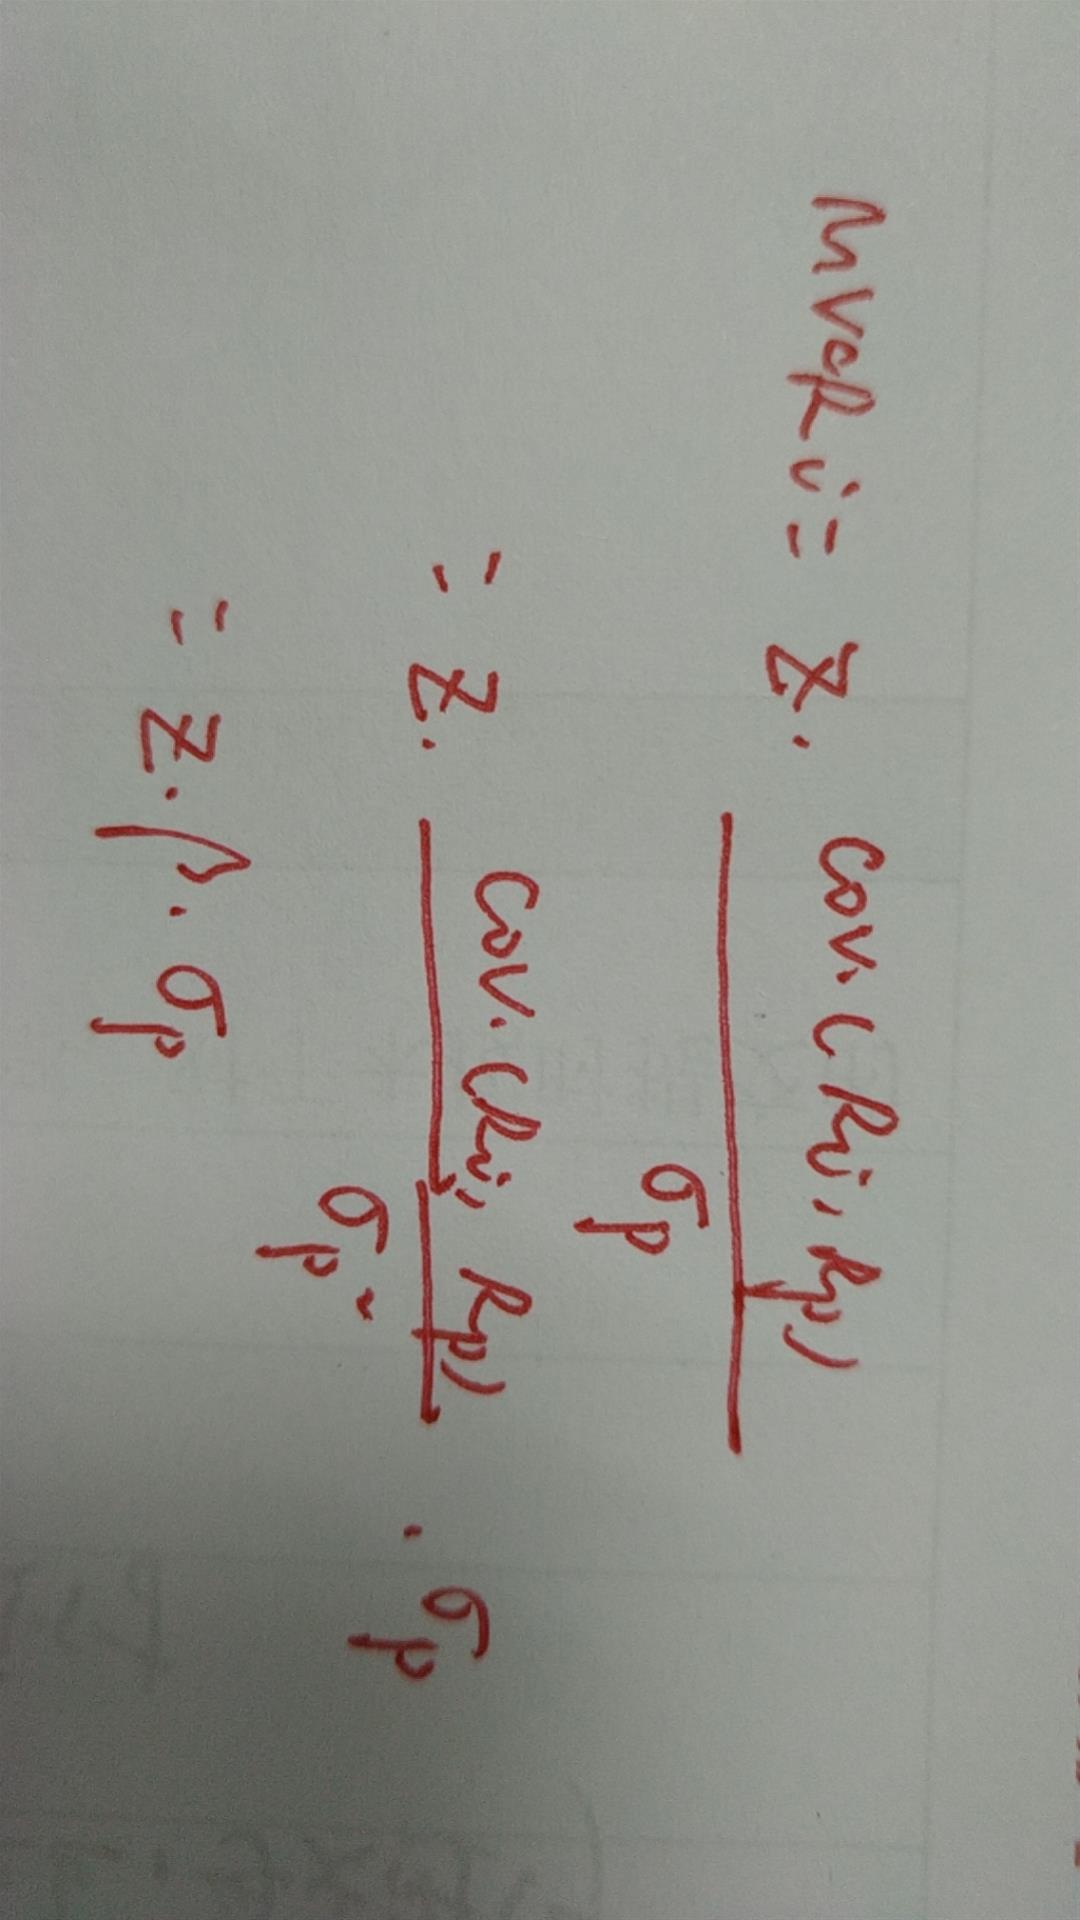 MVaRi = Z. Cov.(Ri, Rp)
σp
= Z. Cov.(Ri, Rp) . σp
σp²
= Z. β. σp